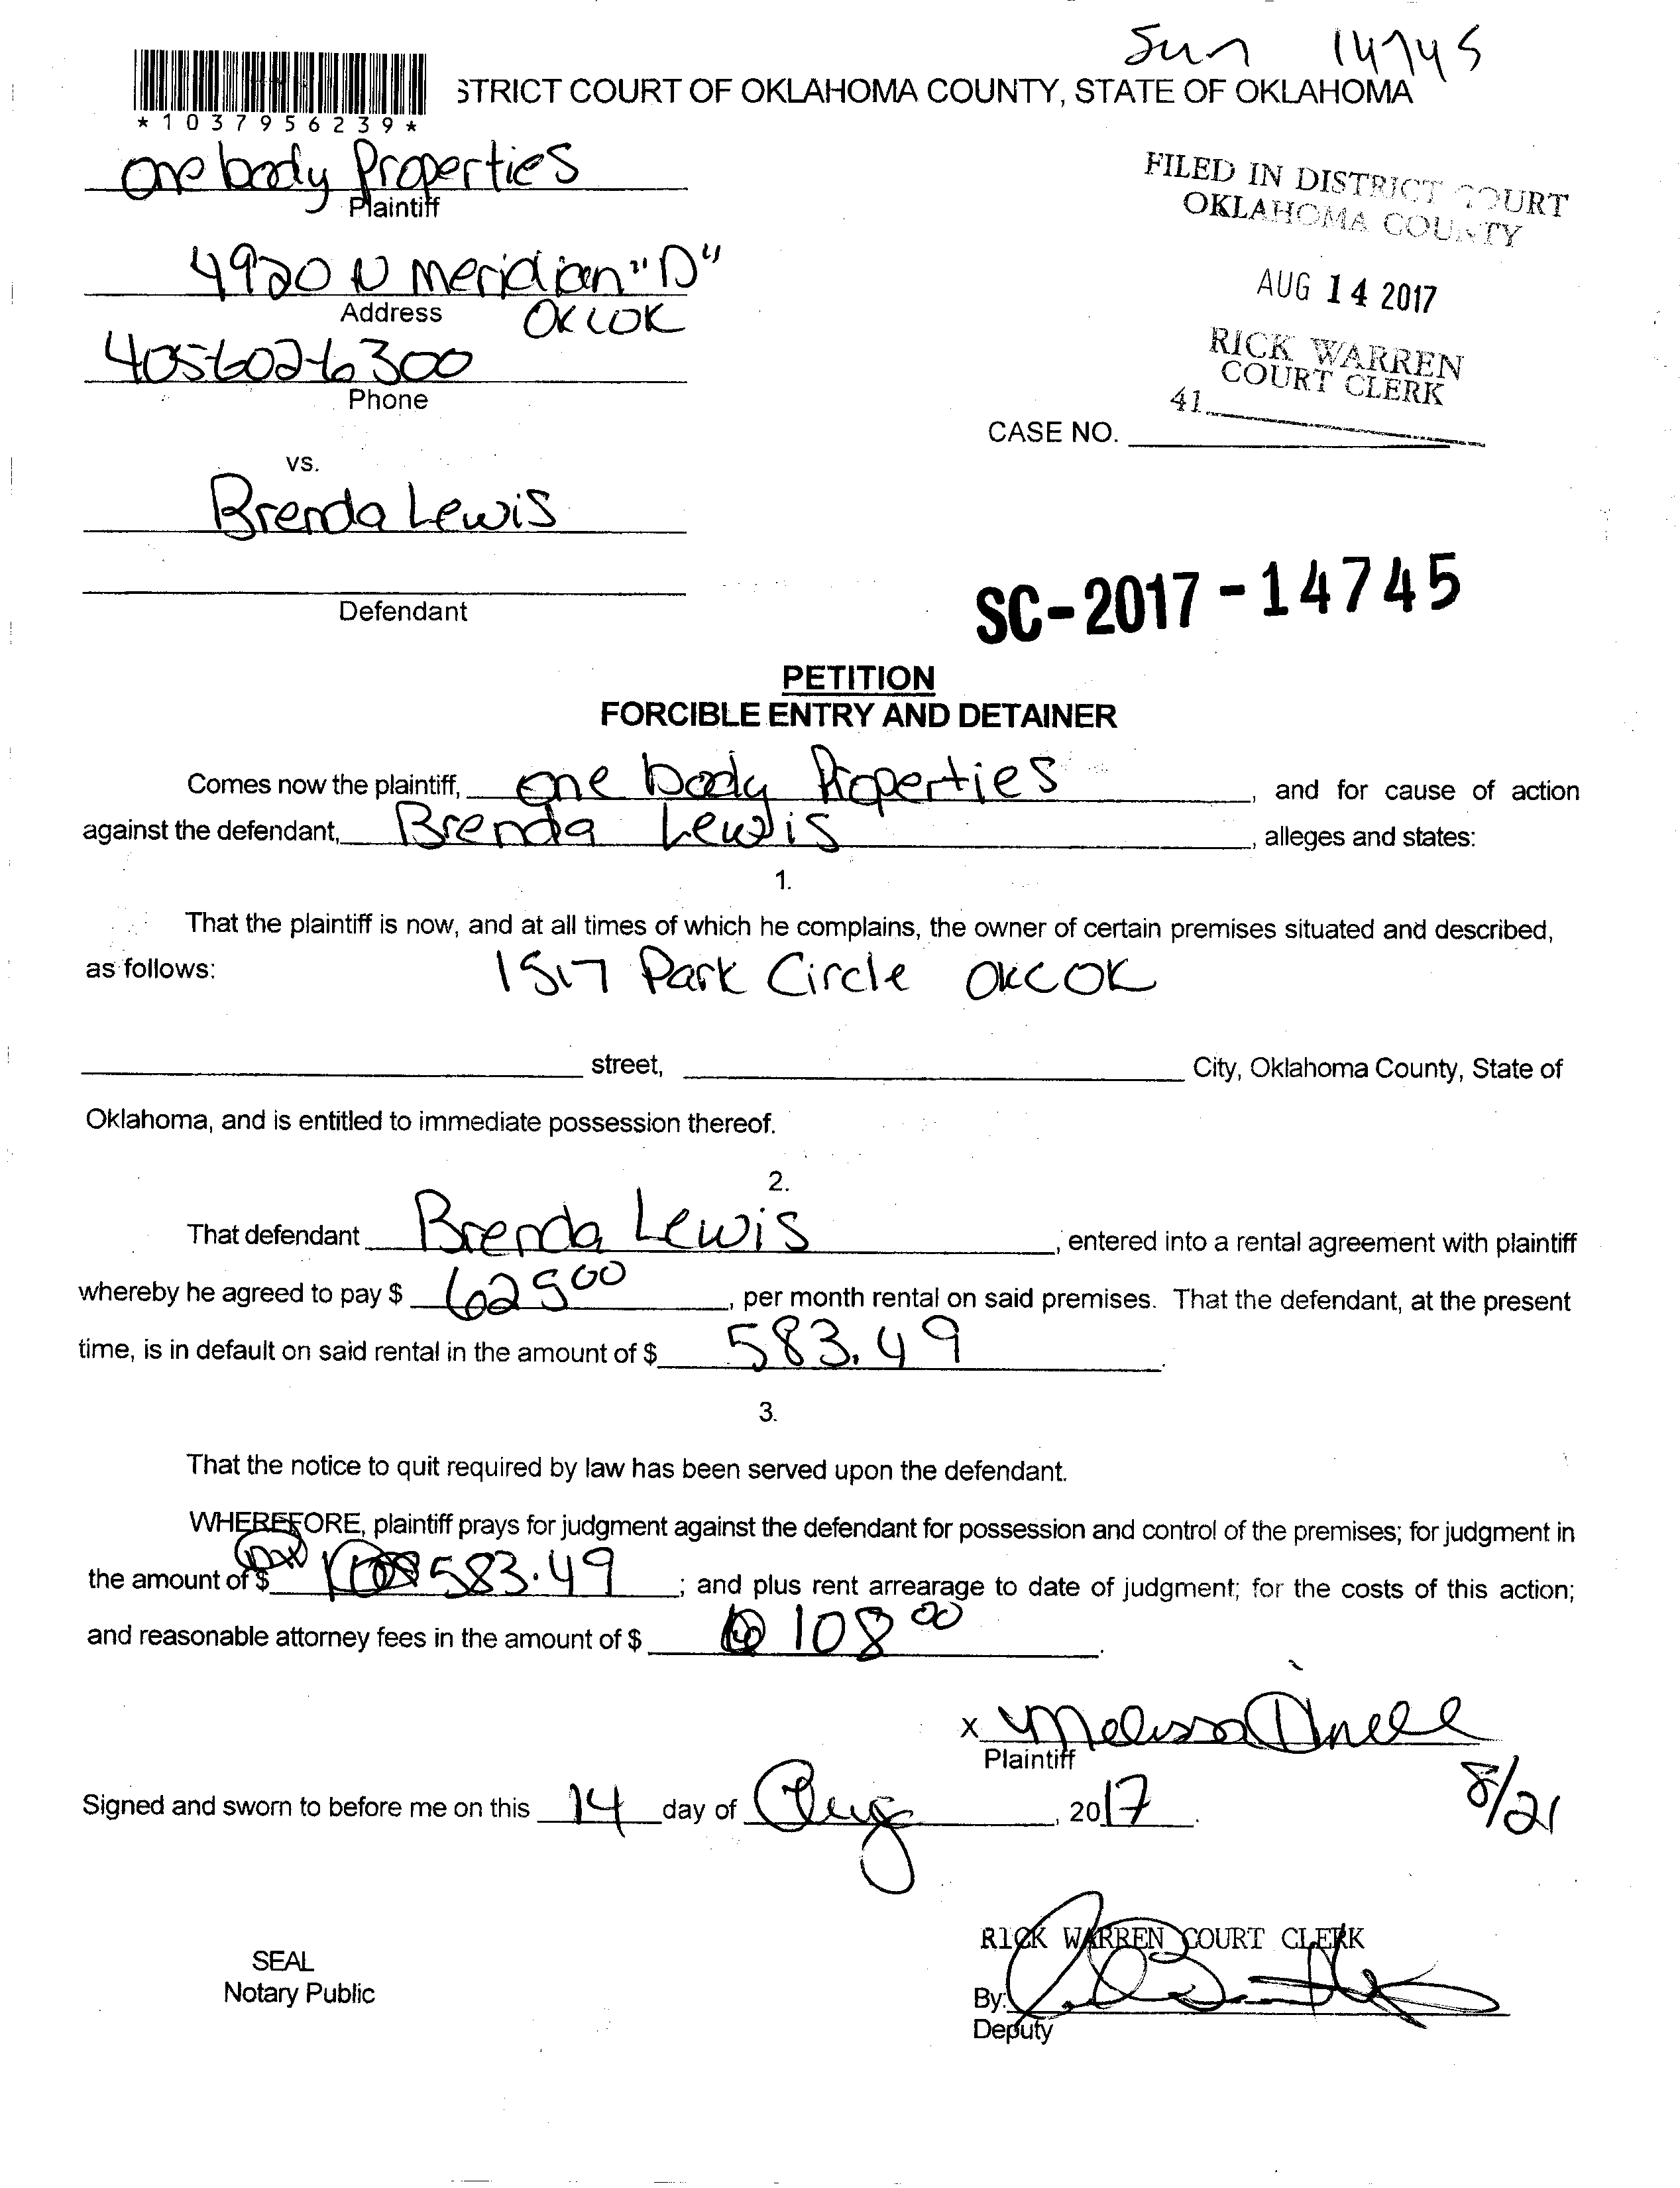 Sum 14745
STRICT COURT OF OKLAHOMA COUNTY, STATE OF OKLAHOMA
*1037956239*
One body Properties
Plaintiff
4920 N Meridian "D"
Address OKC OK
4056026300
Phone
FILED IN DISTRICT COURT
OKLAHOMA COUNTY
AUG 14 2017
RICK WARREN
COURT CLERK
41
CASE NO.
vs.
Brenda Lewis
Defendant
SC-2017-14745
PETITION
FORCIBLE ENTRY AND DETAINER
Comes now the plaintiff, One body Properties, and for cause of action
against the defendant, Brenda Lewis, alleges and states:
1.
That the plaintiff is now, and at all times of which he complains, the owner of certain premises situated and described,
as follows: 1517 Park Circle OKC OK
street, City, Oklahoma County, State of
Oklahoma, and is entitled to immediate possession thereof.
2.
That defendant Brenda Lewis, entered into a rental agreement with plaintiff
whereby he agreed to pay $ 625 00, per month rental on said premises. That the defendant, at the present
time, is in default on said rental in the amount of $ 583.49.
3.
That the notice to quit required by law has been served upon the defendant.
WHEREFORE, plaintiff prays for judgment against the defendant for possession and control of the premises; for judgment in
the amount of $ 583.49; and plus rent arrearage to date of judgment; for the costs of this action;
and reasonable attorney fees in the amount of $ 108 00.
x Melissa
Plaintiff
8/21
Signed and sworn to before me on this 14 day of Aug, 2017.
RICK WARREN COURT CLERK
SEAL
Notary Public
By:
Deputy